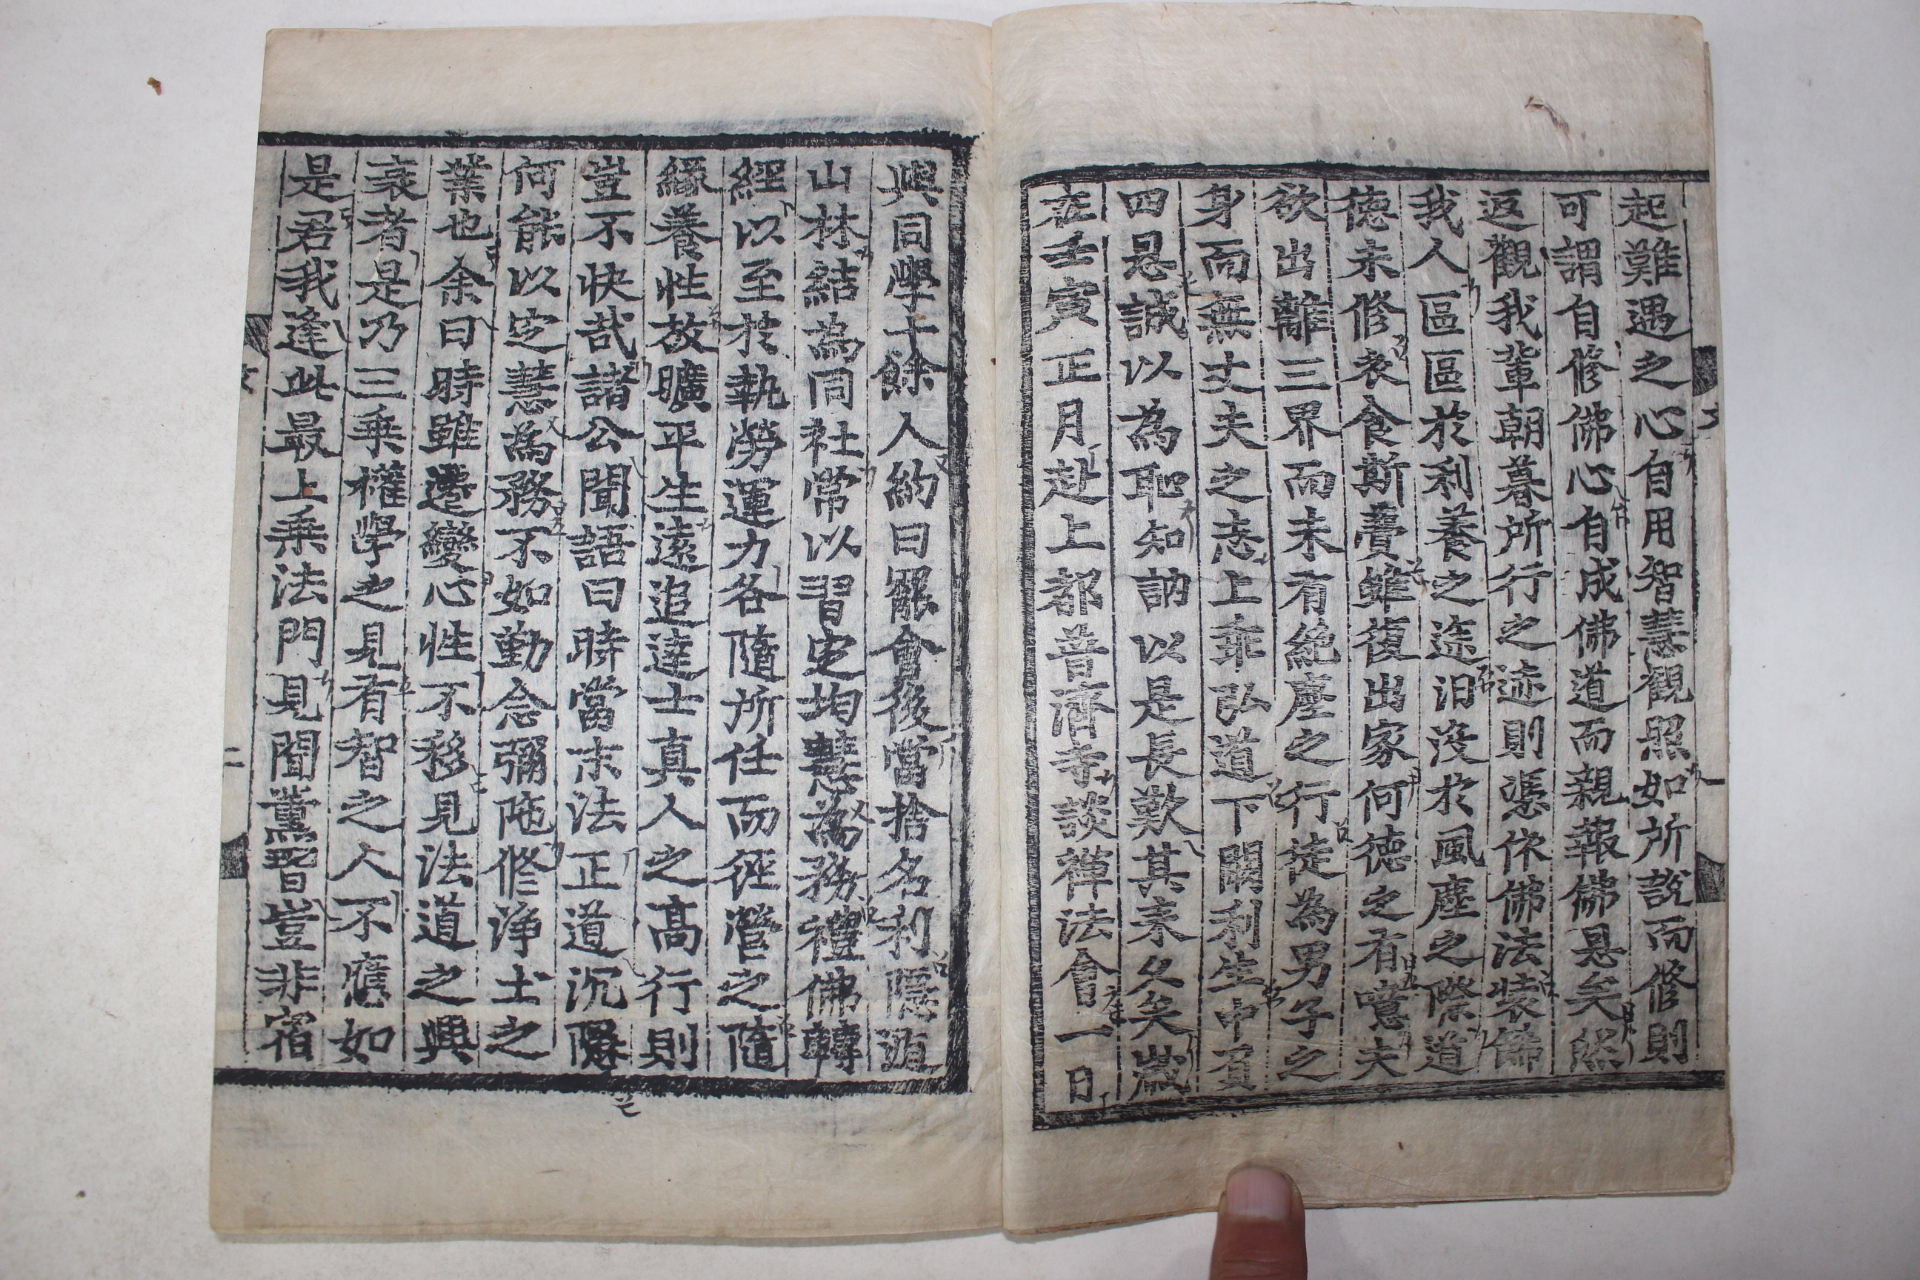 起難遇之心自用智慧觀照如所說而修則
可謂自修佛心自成佛道而親報佛恩矣然
返觀我軰朝暮所行之迹則憑依佛法裝飾
我人區區於利養之途汨沒於風塵之際道
德未修衣食斯費雖復出家何德之有噫夫
欲出離三界而未有絶塵之行徒為男子之
身而無丈夫之志上乖弘道下闕利生中負
四恩誠以為恥知訥以是長歎其來久矣歲
在壬寅正月赴上都普濟寺談禪法會一日
與同學十餘人約曰罷會後當捨名利隱遁
山林結為同社常以習定均慧為務禮佛轉
經以至於執勞運力各隨所任而經營之隨
緣養性放曠平生遠追達士真人之高行則
豈不快哉諸公聞語曰時當末法正道沉隱
何能以定慧為務不如勤念彌陁修淨土之
業也余曰時雖遷變心性不移見法道之興
衰者是乃三乘權學之見有智之人不應如
是君我逢此最上乘法門見聞薰習豈非宿
二